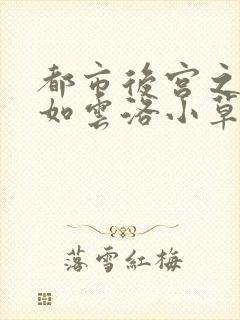 都市後宮之
如雲洛小草
落雪紅梅